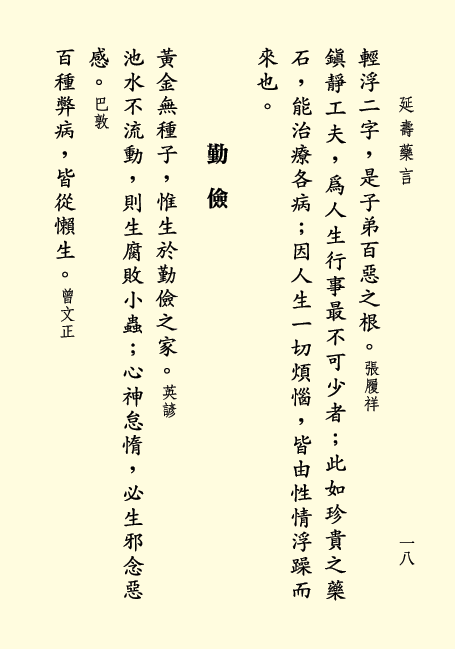 延壽藥言
一八
輕浮二字，是子弟百惡之根。張履祥
鎮靜工夫，爲人生行事最不可少者；此如珍貴之藥
石，能治療各病；因人生一切煩惱，皆由性情浮躁而
來也。
勤儉
黃金無種子，惟生於勤儉之家。英諺
池水不流動，則生腐敗小蟲；心神怠惰，必生邪念惡
感。巴敦
百種弊病，皆從懶生。曾文正